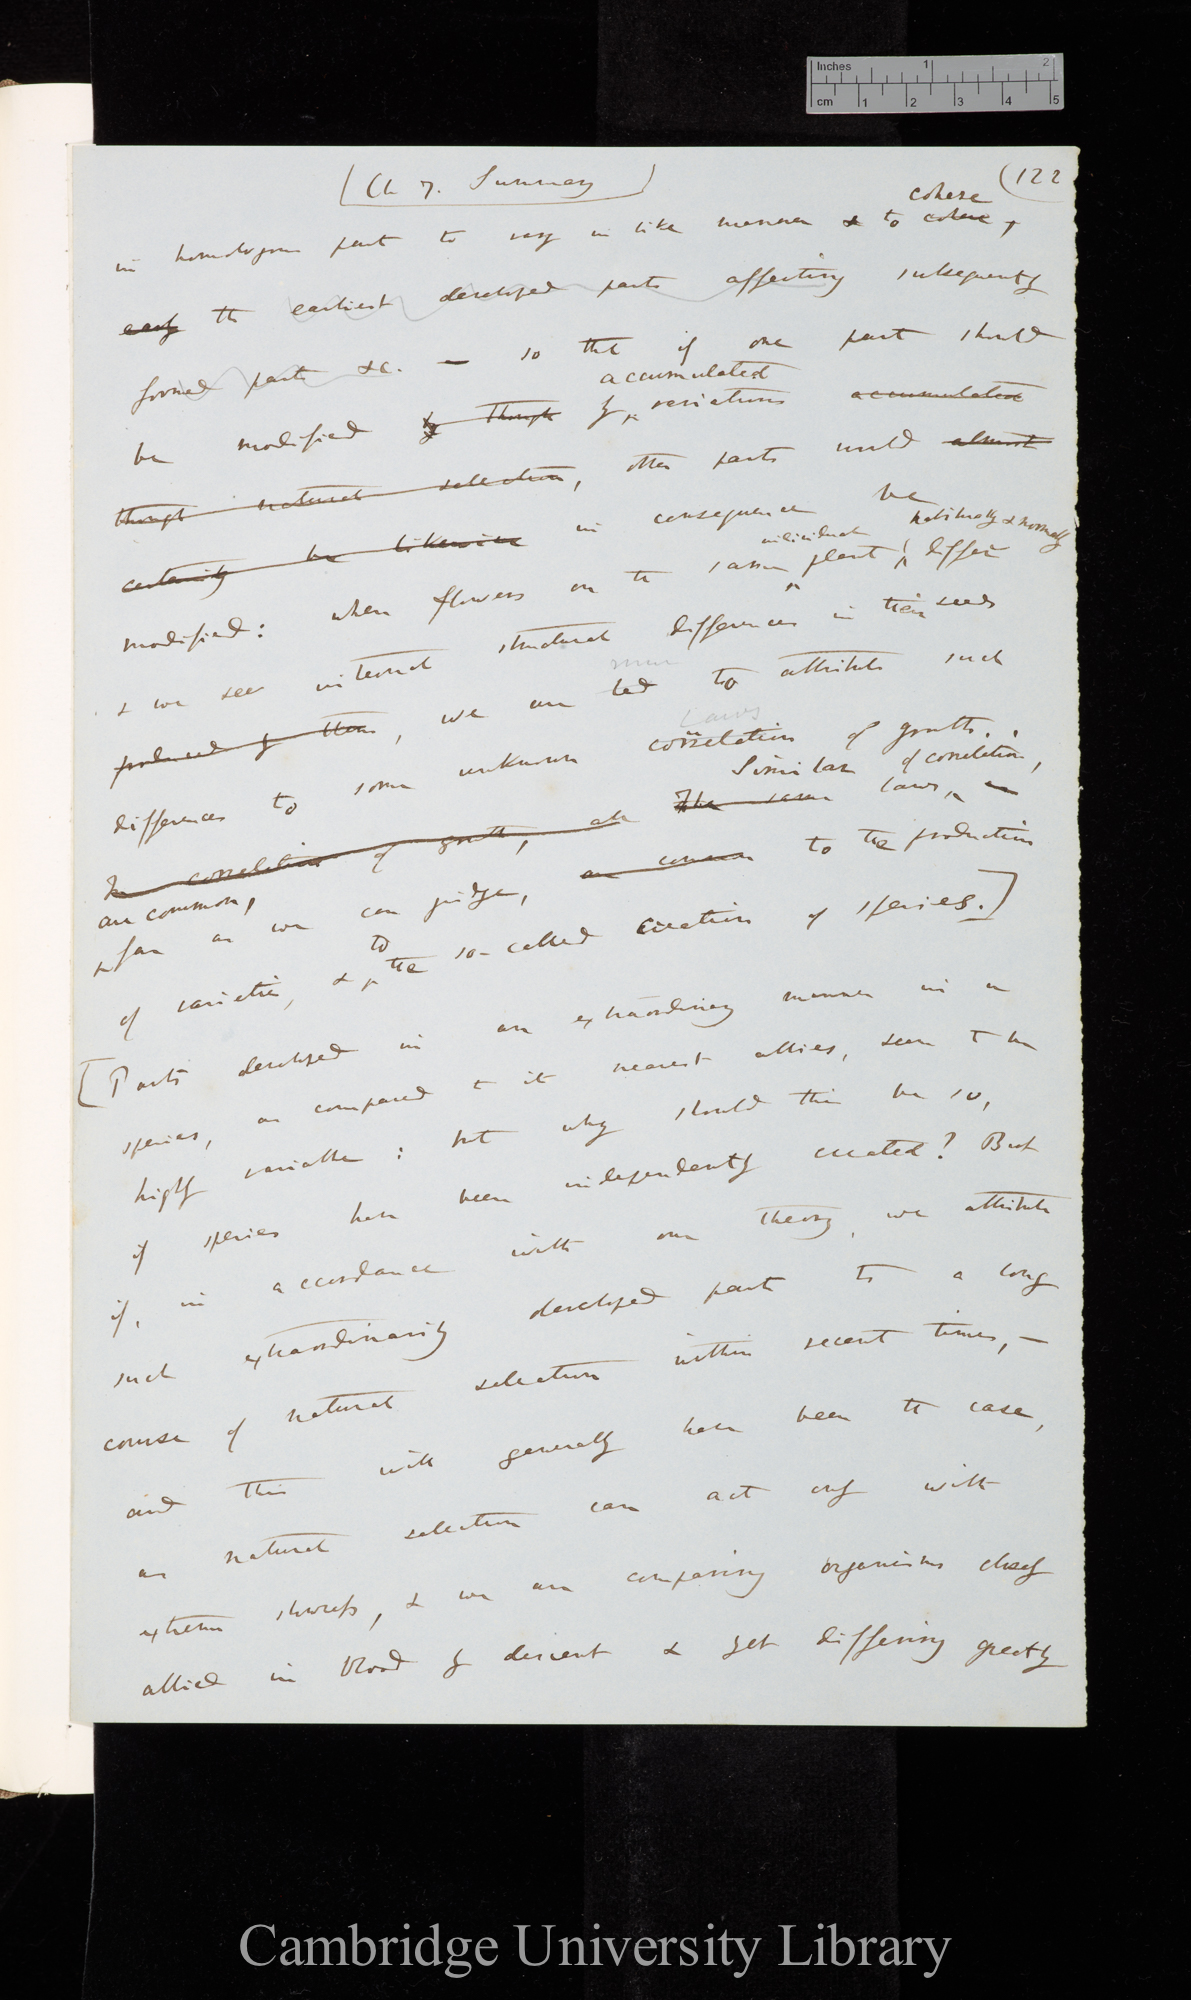 Inches 1 2
cm 1 2 3 4 5
(Ch 7. Summary)
(122
cohere
in homologous part to vary in like manner & to cohere,
early the earliest developed parts affecting subsequently
formed parts &c. — so that if one part should
accumulated
be modified by through by variations accumulated
through natural selection, other parts would almost
certainly be likewise in consequence be
habitually & normally
individual
modified: when flowers on the same plant differ
& we see internal structural differences in their seeds
produced by them, we are led to attribute such
Laws
differences to some unknown correlation of growth.
Similar of correlation,
the correlation of growth, all The same laws,
are common,
far as we can judge, are common to the production
to
of varieties, & the so-called creation of species.]
[Parts developed in an extraordinary manner in a
species, as compared to its nearest allies, seem to be
highly variable: but why should this be so,
if species have been independently created? But
if, in accordance with our theory, we attribute
such extraordinarily developed part to a long
course of natural selection within recent times, —
and this will generally have been the case,
as natural selection can act only with
extreme slowness, & we are comparing organisms closely
allied in blood by descent & yet differing greatly
Cambridge University Library